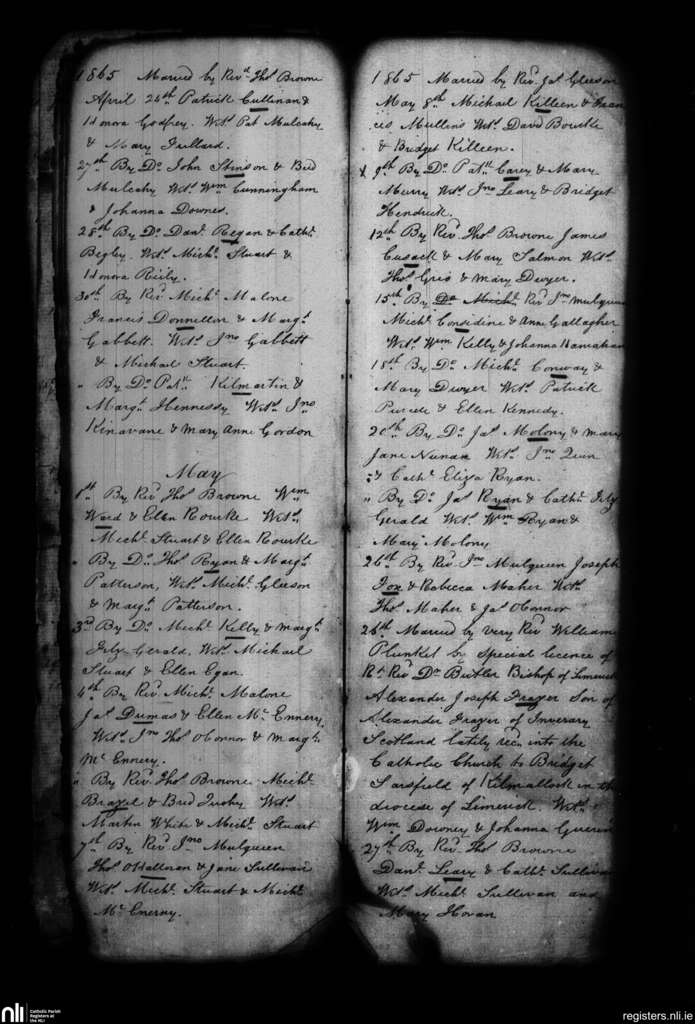 1865 Married by Revd Thos Browne
April 26th Patrick Cullinan &
Honora Godfrey. Wits Pat Mulcahy
& Mary
27th By Do John Stinson & Brid
Mulcahy Wits Wm Cunningham
& Johanna Downes.
28th By Do Danl Regan & Cathe
Begley. Wits Michl Stuart &
Honora Reily.
30th By Revd Michl Malone
Francis Donnellon & Margt
Gabbett. Wits Jno Gabbett
& Michael Stuart.
" By Do Patk Kilmartin &
Margt Hennessy Wits Jno
Kinavane & Mary Anne Gordon
May
1st By Revd Thos Browne Wm
Ward & Ellen Rourke Wits
Michl Stuart & Ellen Rourke
" By Do Thos Ryan & Margt
Patterson, Wits Michl Gleeson
& Margt Patterson.
3rd By Do Michl Kelly & Margt
Fitz Gerald, Wits Michael
Stuart & Ellen Egan.
4th By Revd Michl Malone
Jas Dumas & Ellen Mc Ennery
Wits Jno Thos O'Connor & Margt
Mc Ennery.
" By Revd Thos Browne Michl
Brazel & Brid Wits
Martin White & Michl Stuart
7th By Revd Jno Mulqueen
Thos O'Halloran & Jane Sullivan
Wits Michl Stuart & Michl
Mc Enerny.
1865 Married by Revd Jas Gleeson
May 8th Michael Killeen & Fran
ces Mullins Wits David Bourke
& Bridget Killeen.
x 9th By Do Patk Carey & Mary
Murry Wits Jno Leary & Bridget
Hendrick.
12th By Revd Thos Browne James
Cusack & Mary Salmon Wits
Thos & Mary Dwyer.
15th By Do Michl Revd Jno Mulqueen
Michl Considine & Anne Gallagher
Wits Wm Kelly & Johanna Hanrahan
18th By Do Michl Conway &
Mary Dwyer Wits Patrick
Purcell & Ellen Kennedy.
20th By Do Jas Molony & Mary
Jane Nunan Wits Jno Quin
& Cathe Eliza Ryan.
" By Do Jas Ryan & Cathe Fitz
Gerald Wits Wm Ryan &
Mary Molony
26th By Revd Jno Mulqueen Joseph
Fox & Rebecca Maher Wits
Thos Maher & Jas O'Connor
26th Married by Very Revd William
Plunket by special licence of
Rt Revd Dr Butler Bishop of Limerick
Alexander Joseph Frazer Son of
Alexander Frazer of Inverary
Scotland lately recd into the
Catholic Church to Bridget
Sarsfield of Kilmallock in the
diocese of Limerick. Wits
Wm Downey & Johanna Guerin
27th By Revd Thos Browne
Danl Leary & Cathe Sullivan
Wits Michl Sullivan and
Mary Horan
nli Catholic Parish
Registers at
the NLI
registers.nli.ie